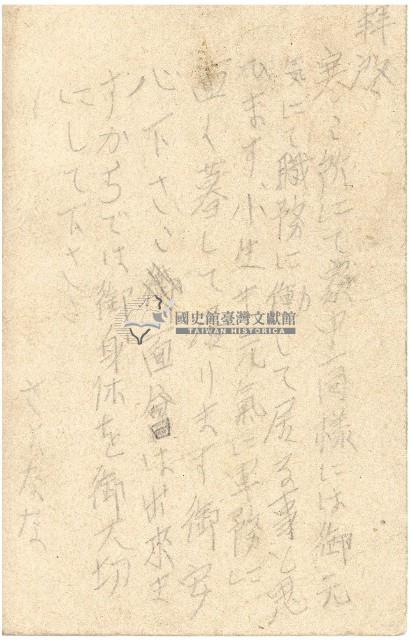 拝啓
寒に にて家中一同様には御元
気にて職務に働して居る事と思
ひます、小生も元氣に軍務に
く暮して居ります御安
心下さい 面會は出來ま
すからでは御身体を御大切
にして下さい
さよなな
國史館臺灣文獻館
TAIWAN HISTORICA